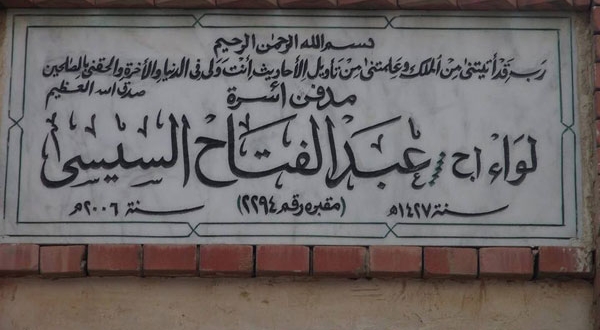 بسم الله الرحمن الرحيم
رب قد أتيتنى من الملك وعلمتنى من تاويل الأحاديث أنت ولى فى الدنيا والأخرة والحقنى بالصلحين
صدق الله العظيم
مدفن أسرة
لواء / ح عبد الفتاح السيسى
سنة ١٤٢٧هـ (مقبره رقم ٢٢٩٤) سنة ٢٠٠٦م